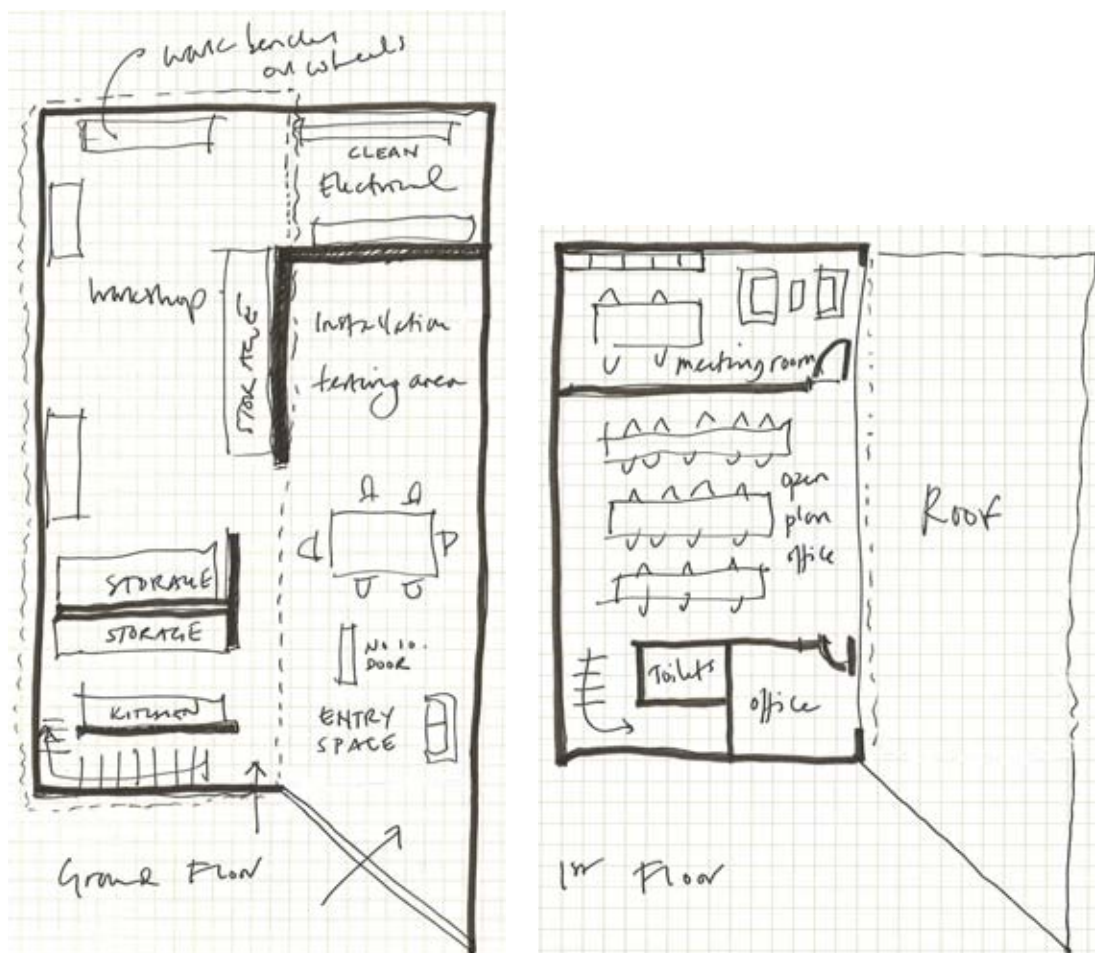 work benches
on wheels
CLEAN
Electrical
workshop
STORAGE
Installation
testing area
STORAGE
STORAGE
No 10.
DOOR
KITCHEN
ENTRY
SPACE
Ground Floor
meeting room
open
plan
office
Roof
Toilets
office
1st Floor